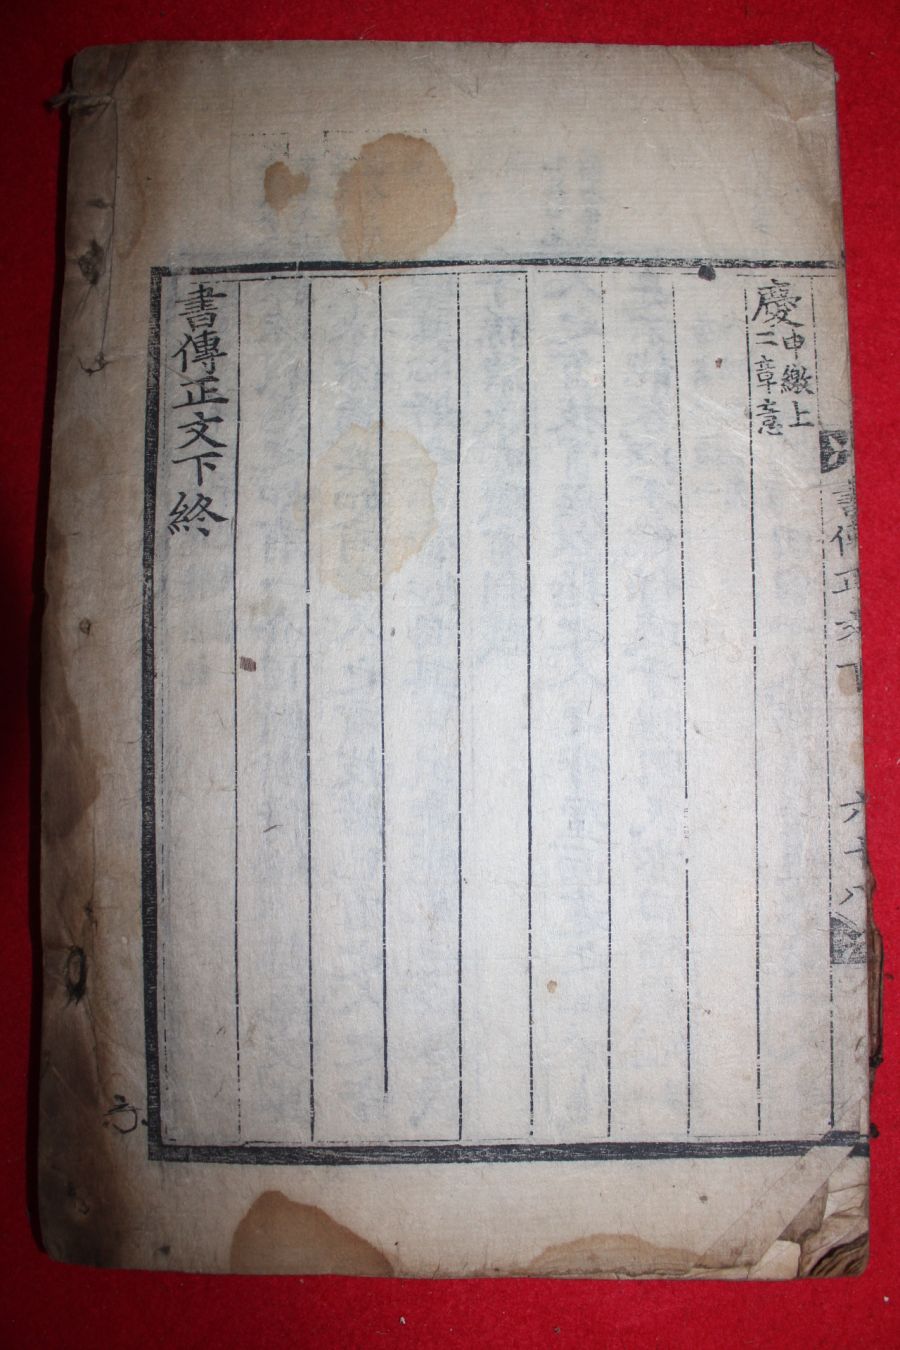 慶申繳上二章意
書傳正文下終
書傳正文下
六十八